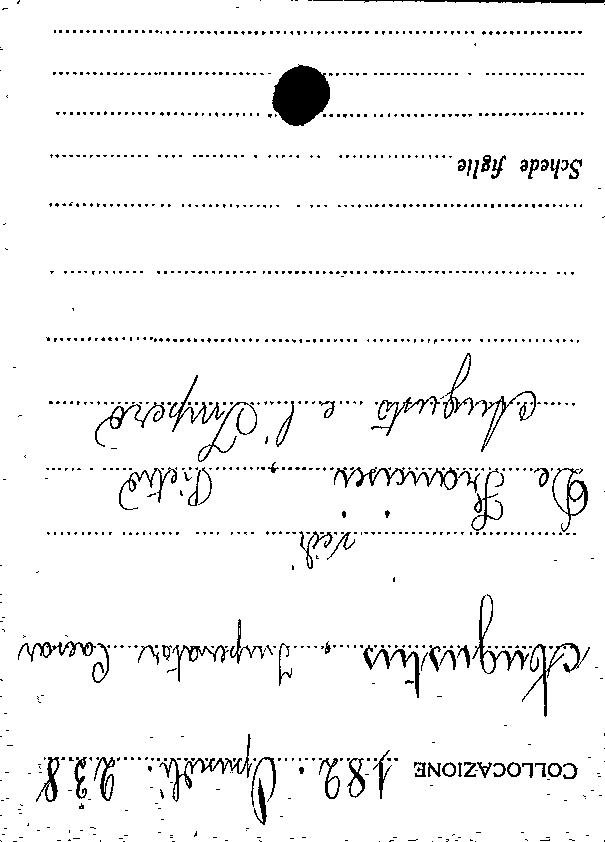 COLLOCAZIONE 182. Opuscoli. 238
Augustus, Imperator Caesar
vedi
De Francisci, Pietro
Augusto e l'Impero
Schede figlie